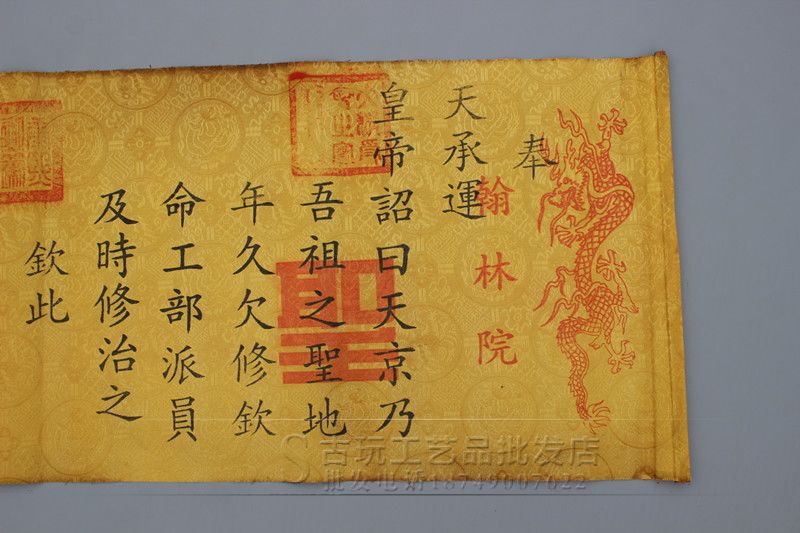 奉
翰林院
天承運
皇帝詔曰天京乃
吾祖之聖地
年久欠修欽
命工部派員
及時修治之
欽此
古玩工艺品批发店
批发电话18749007622